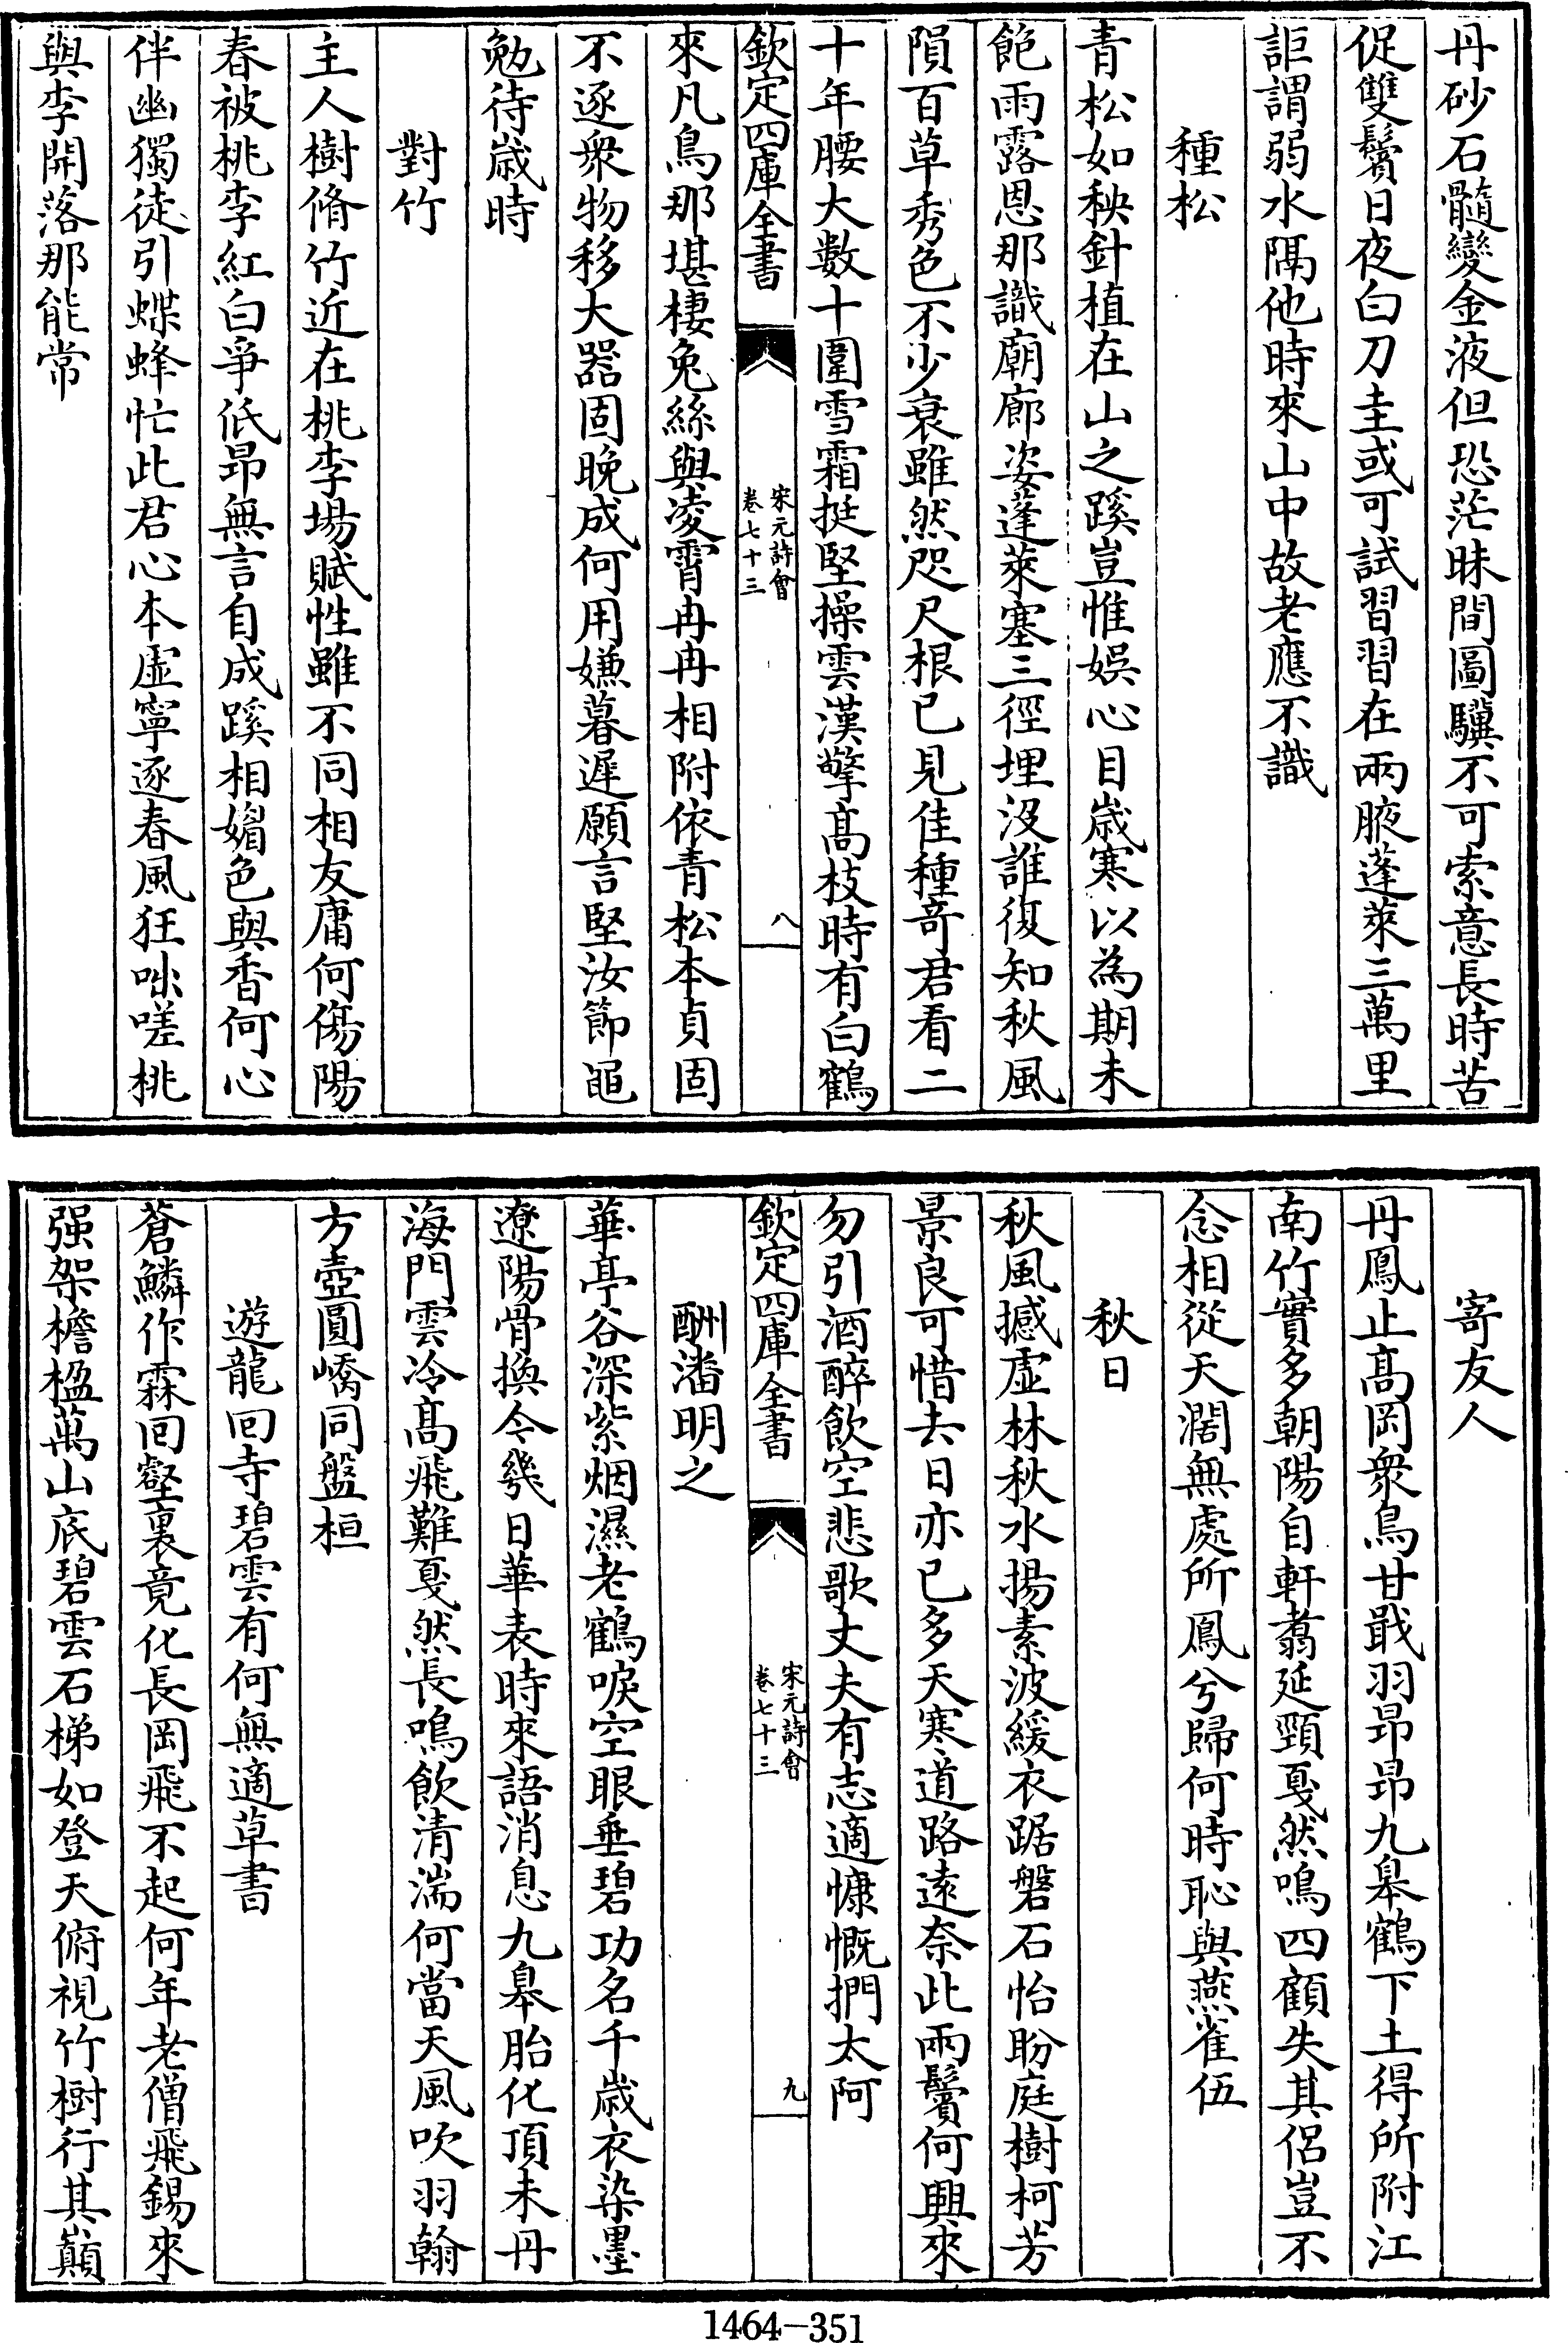 丹砂石髓變金液但恐茫昧間圖驥不可索意長時苦
促雙鬢日夜白刀圭或可試習習在兩腋蓬萊三萬里
詎謂弱水隔他時來山中故老應不識
種松
青松如秧針植在山之蹊豈惟娛心目歲寒以為期未
飽雨露恩那識廟廊姿蓬萊塞三徑埋沒誰復知秋風
隕百草秀色不少衰雖然咫尺根已見佳種奇君看二
十年腰大數十圍雪霜挺堅操雲漢擎高枝時有白鶴
欽定四庫全書
宋元詩會
卷七十三
八
來凡鳥那堪棲兔絲與凌霄冉冉相附依青松本貞固
不逐衆物移大器固晚成何用嫌暮遲願言堅汝節黽
勉待歲時
對竹
主人樹脩竹近在桃李場賦性雖不同相友庸何傷陽
春被桃李紅白爭低昂無言自成蹊相媚色與香何心
伴幽獨徒引蝶蜂忙此君心本虛寧逐春風狂咄嗟桃
與李開落那能常
寄友人
丹鳳止高岡衆鳥甘戢羽昂昂九皋鶴下土得所附江
南竹實多朝陽自軒翥延頸戛然鳴四顧失其侶豈不
念相從天濶無處所鳳兮歸何時恥與燕雀伍
秋日
秋風撼虛林秋水揚素波緩衣踞磐石怡盼庭樹柯芳
景良可惜去日亦已多天寒道路遠奈此兩鬢何興來
勿引酒醉飲空悲歌丈夫有志適慷慨捫太阿
欽定四庫全書
宋元詩會
卷七十三
九
酬潘明之
華亭谷深紫烟濕老鶴唳空眼垂碧功名千歲衣染墨
遼陽骨換今幾日華表時來語消息九皋胎化頂未丹
海門雲冷高飛難戛然長鳴飲清湍何當天風吹羽翰
方壺圓嶠同盤桓
遊龍回寺碧雲有何無適草書
蒼鱗作霖回壑裏竟化長岡飛不起何年老僧飛錫來
强架檐楹萬山底碧雲石梯如登天俯視竹樹行其巔
1464-351